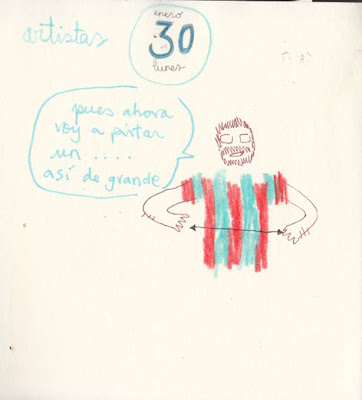 artistas
enero
30
lunes
pues ahora
voy a pintar
un ....
así de grande